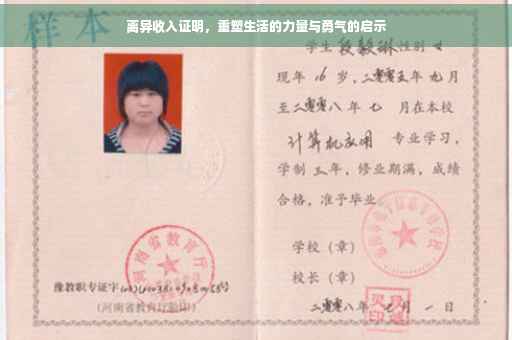 离异收入证明，重塑生活的力量与勇气的启示
样本
学生 段毅琳 性别 女
现年 16 岁，二零零五年 九 月
至二零零八年 七 月在本校
计算机应用 专业学习，
学制 三 年，修业期满，成绩
合格，准予毕业。
学校（章）
校长（章）
二零零八年 七 月 一 日
河南省教育厅
豫教职专证字
（河南省教育厅验印）